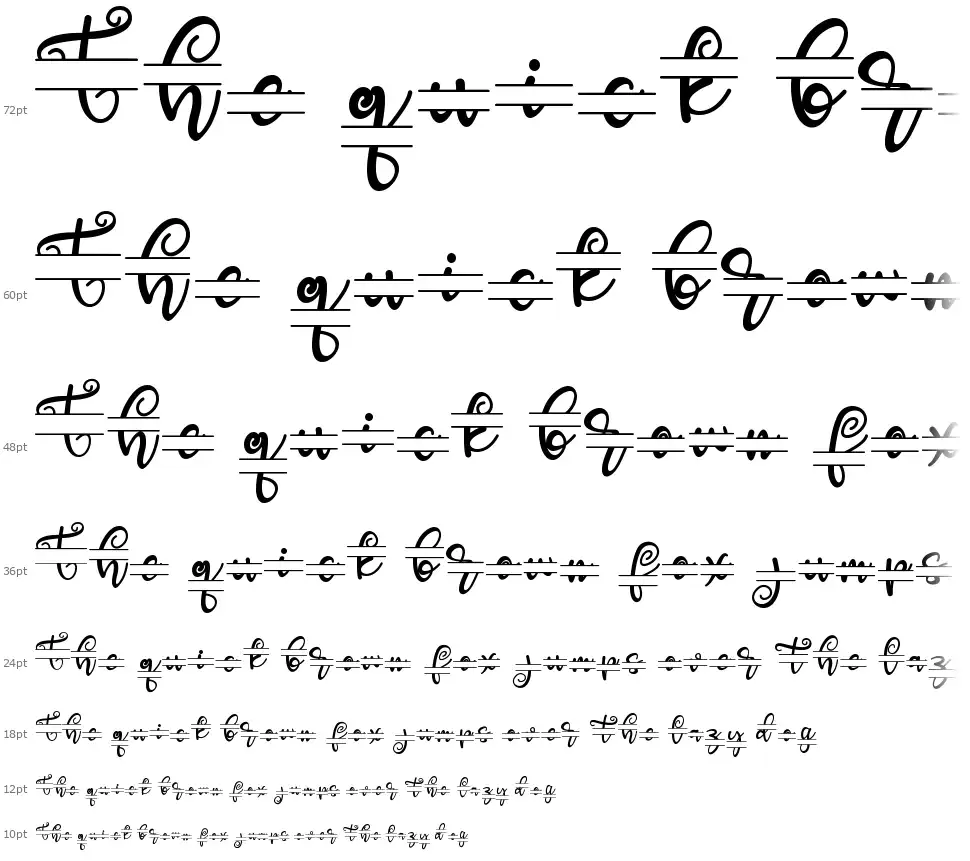 72pt The quick br
60pt The quick brown
48pt The quick brown fox
36pt The quick brown fox jumps
24pt The quick brown fox jumps over The laz
18pt The quick brown fox jumps over The lazy dog
12pt The quick brown fox jumps over The lazy dog
10pt The quick brown fox jumps over The lazy dog